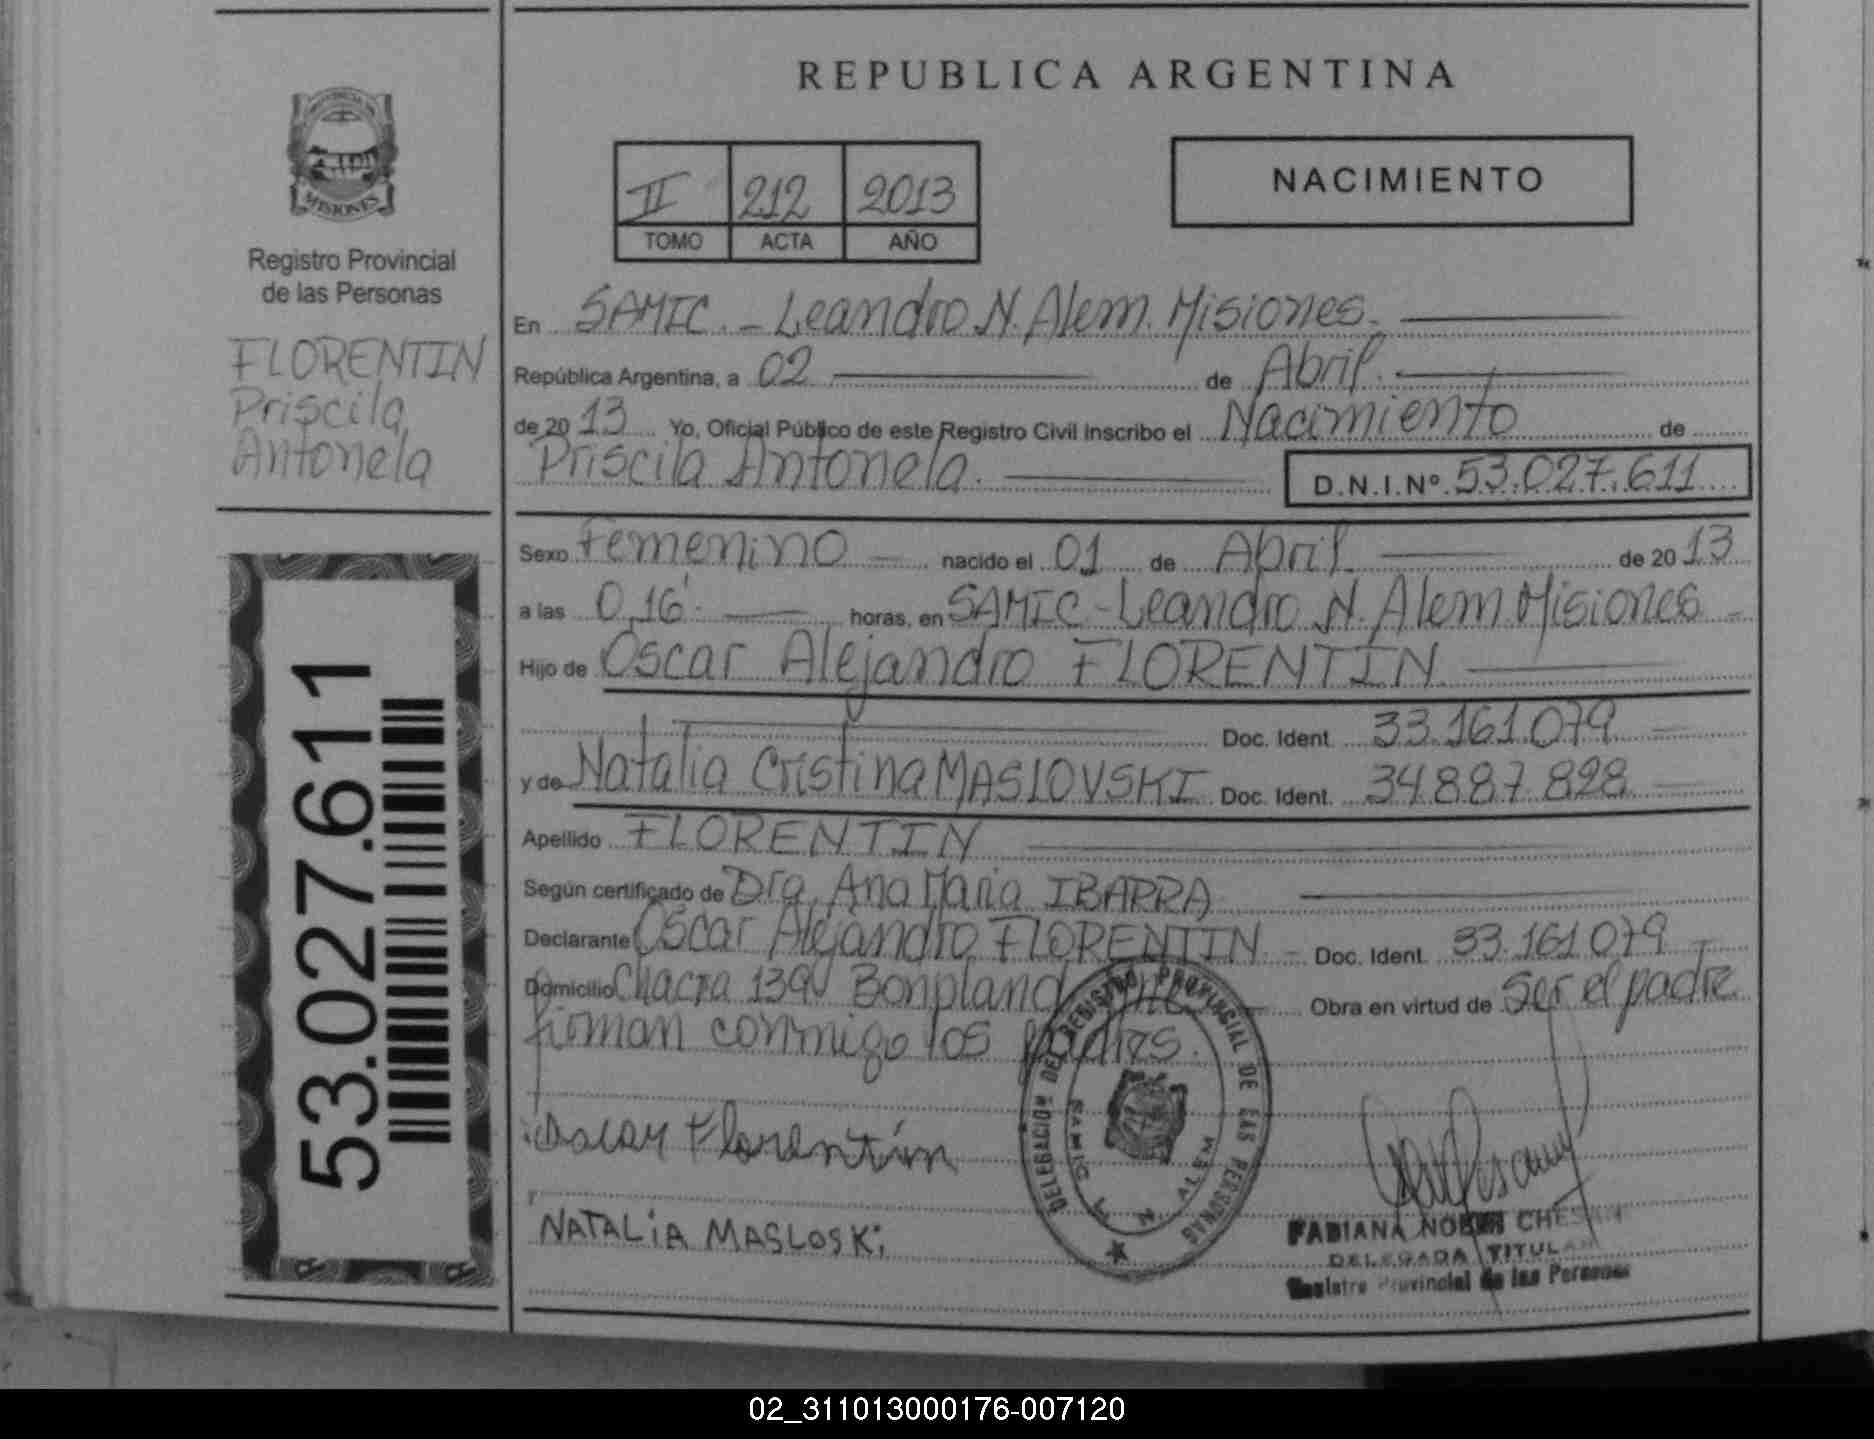 REPUBLICA ARGENTINA
NACIMIENTO
II 212 2013
TOMO ACTA AÑO
PROVINCIA DE
MISIONES
Registro Provincial
de las Personas
FLORENTIN
Priscila
Antonela
53.027.611
En SAMIC - Leandro N. Alem. Misiones.
República Argentina, a 02 de Abril.
de 2013 Yo, Oficial Público de este Registro Civil inscribo el Nacimiento de
Priscila Antonela. D.N.I.Nº 53.027.611
Sexo Femenino nacido el 01 de Abril de 2013
a las 0,16' horas, en SAMIC - Leandro N. Alem. Misiones
Hijo de Oscar Alejandro FLORENTIN
Doc. Ident. 33.161.079
y de Natalia Cristina MASLOVSKI Doc. Ident. 34.887.828
Apellido FLORENTIN
Según certificado de Dra. Ana Maria IBARRA
Declarante Oscar Alejandro FLORENTIN - Doc. Ident. 33.161.079
Domicilio Chacra 139 Bonpland Obra en virtud de Ser el padre
firman conmigo los padres.
Oscar Florentín
NATALiA MASLOSKi
DELEGACION DEL REGISTRO PROVINCIAL DE LAS PERSONAS
SAMIC L. N. ALEM
FABIANA
DELEGADA TITULAR
Registro Provincial de las Personas
02_311013000176-007120